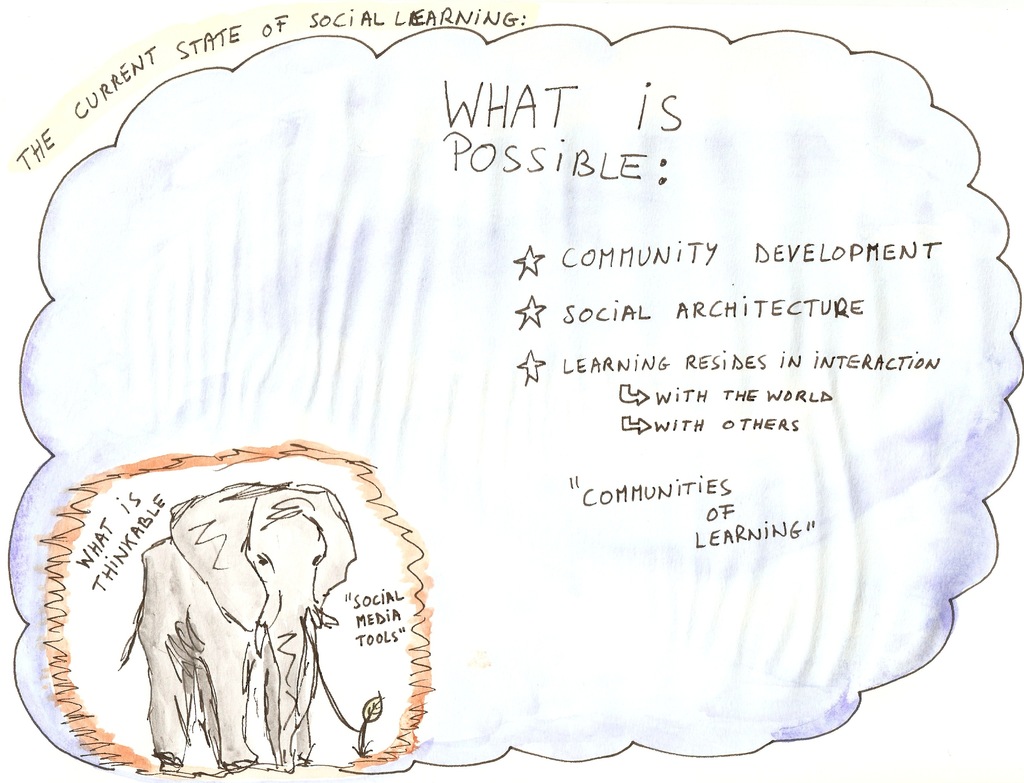 THE CURRENT STATE OF SOCIAL LEARNING:
WHAT iS
POSSiBLE:
☆ COMMUNiTY DEVELOPMENT
☆ SOCiAL ARCHiTECTURE
☆ LEARNING RESiDES iN iNTERACTiON
↳ WiTH THE WORLD
↳ WiTH OTHERS
"COMMUNiTiES
OF
LEARNiNG"
WHAT iS
THiNKABLE
"SOCiAL
MEDiA
TOOLS"